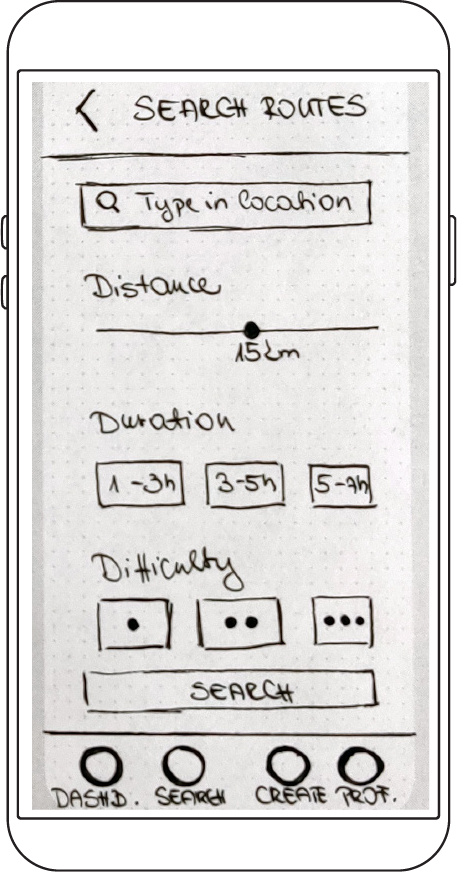 SEARCH ROUTES
Type in location
Distance
15km
Duration
1-3h 3-5h 5-7h
Difficulty
SEARCH
DASHD. SEARCH CREATE PROF.